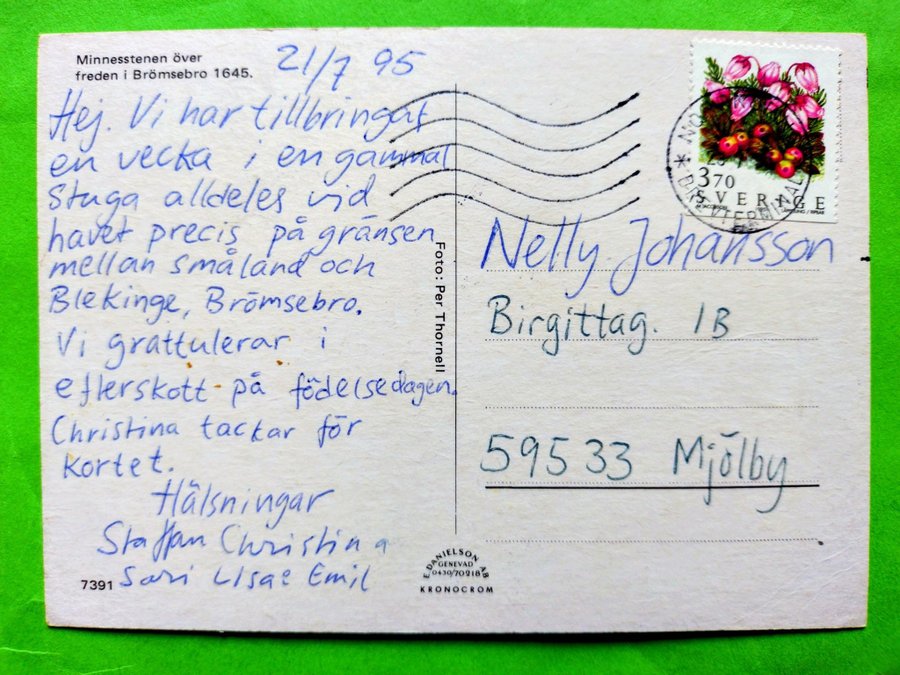 Minnesstenen över
freden i Brömsebro 1645.
21/7 95
Hej. Vi har tillbringat
en vecka i en gammal
stuga alldeles vid
havet precis på gränsen
mellan småland och
Blekinge, Brömsebro.
Vi grattulerar i
efterskott på födelsedagen.
Christina tackar för
kortet.
Hälsningar
Staffan Christina
Sari Lisa Emil
7391
Foto: Per Thornell
E. DANIELSON AB
GENEVAD
0430/70218
KRONOCROM
3 70
SVERIGE
Nelly Johansson
Birgittag. 1B
59533 Mjölby